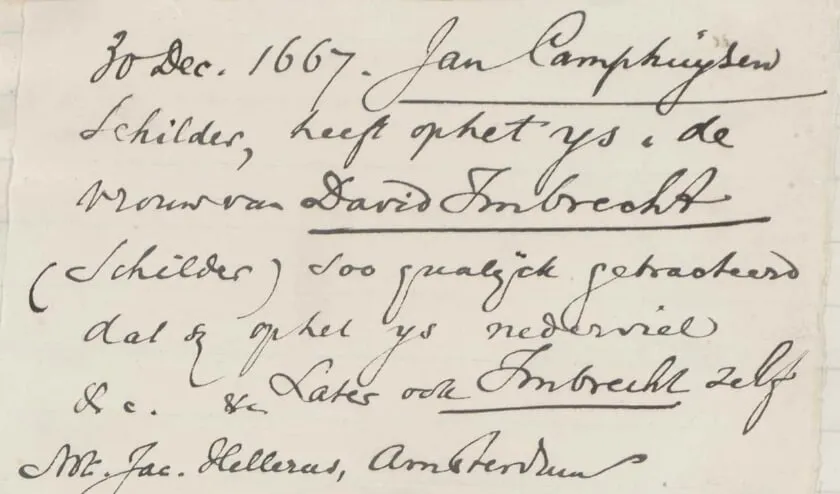 30 Dec. 1667. Jan Camphuijsen
Schilder, heeft ophet ys, de
vrouw van David Imbrecht
(Schilder) soo qualijck getracteerd
dat sy ophet ys nederviel
&c. &c Later ook Imbrecht zelf
Not. Jac. Hellerus, Amsterdam